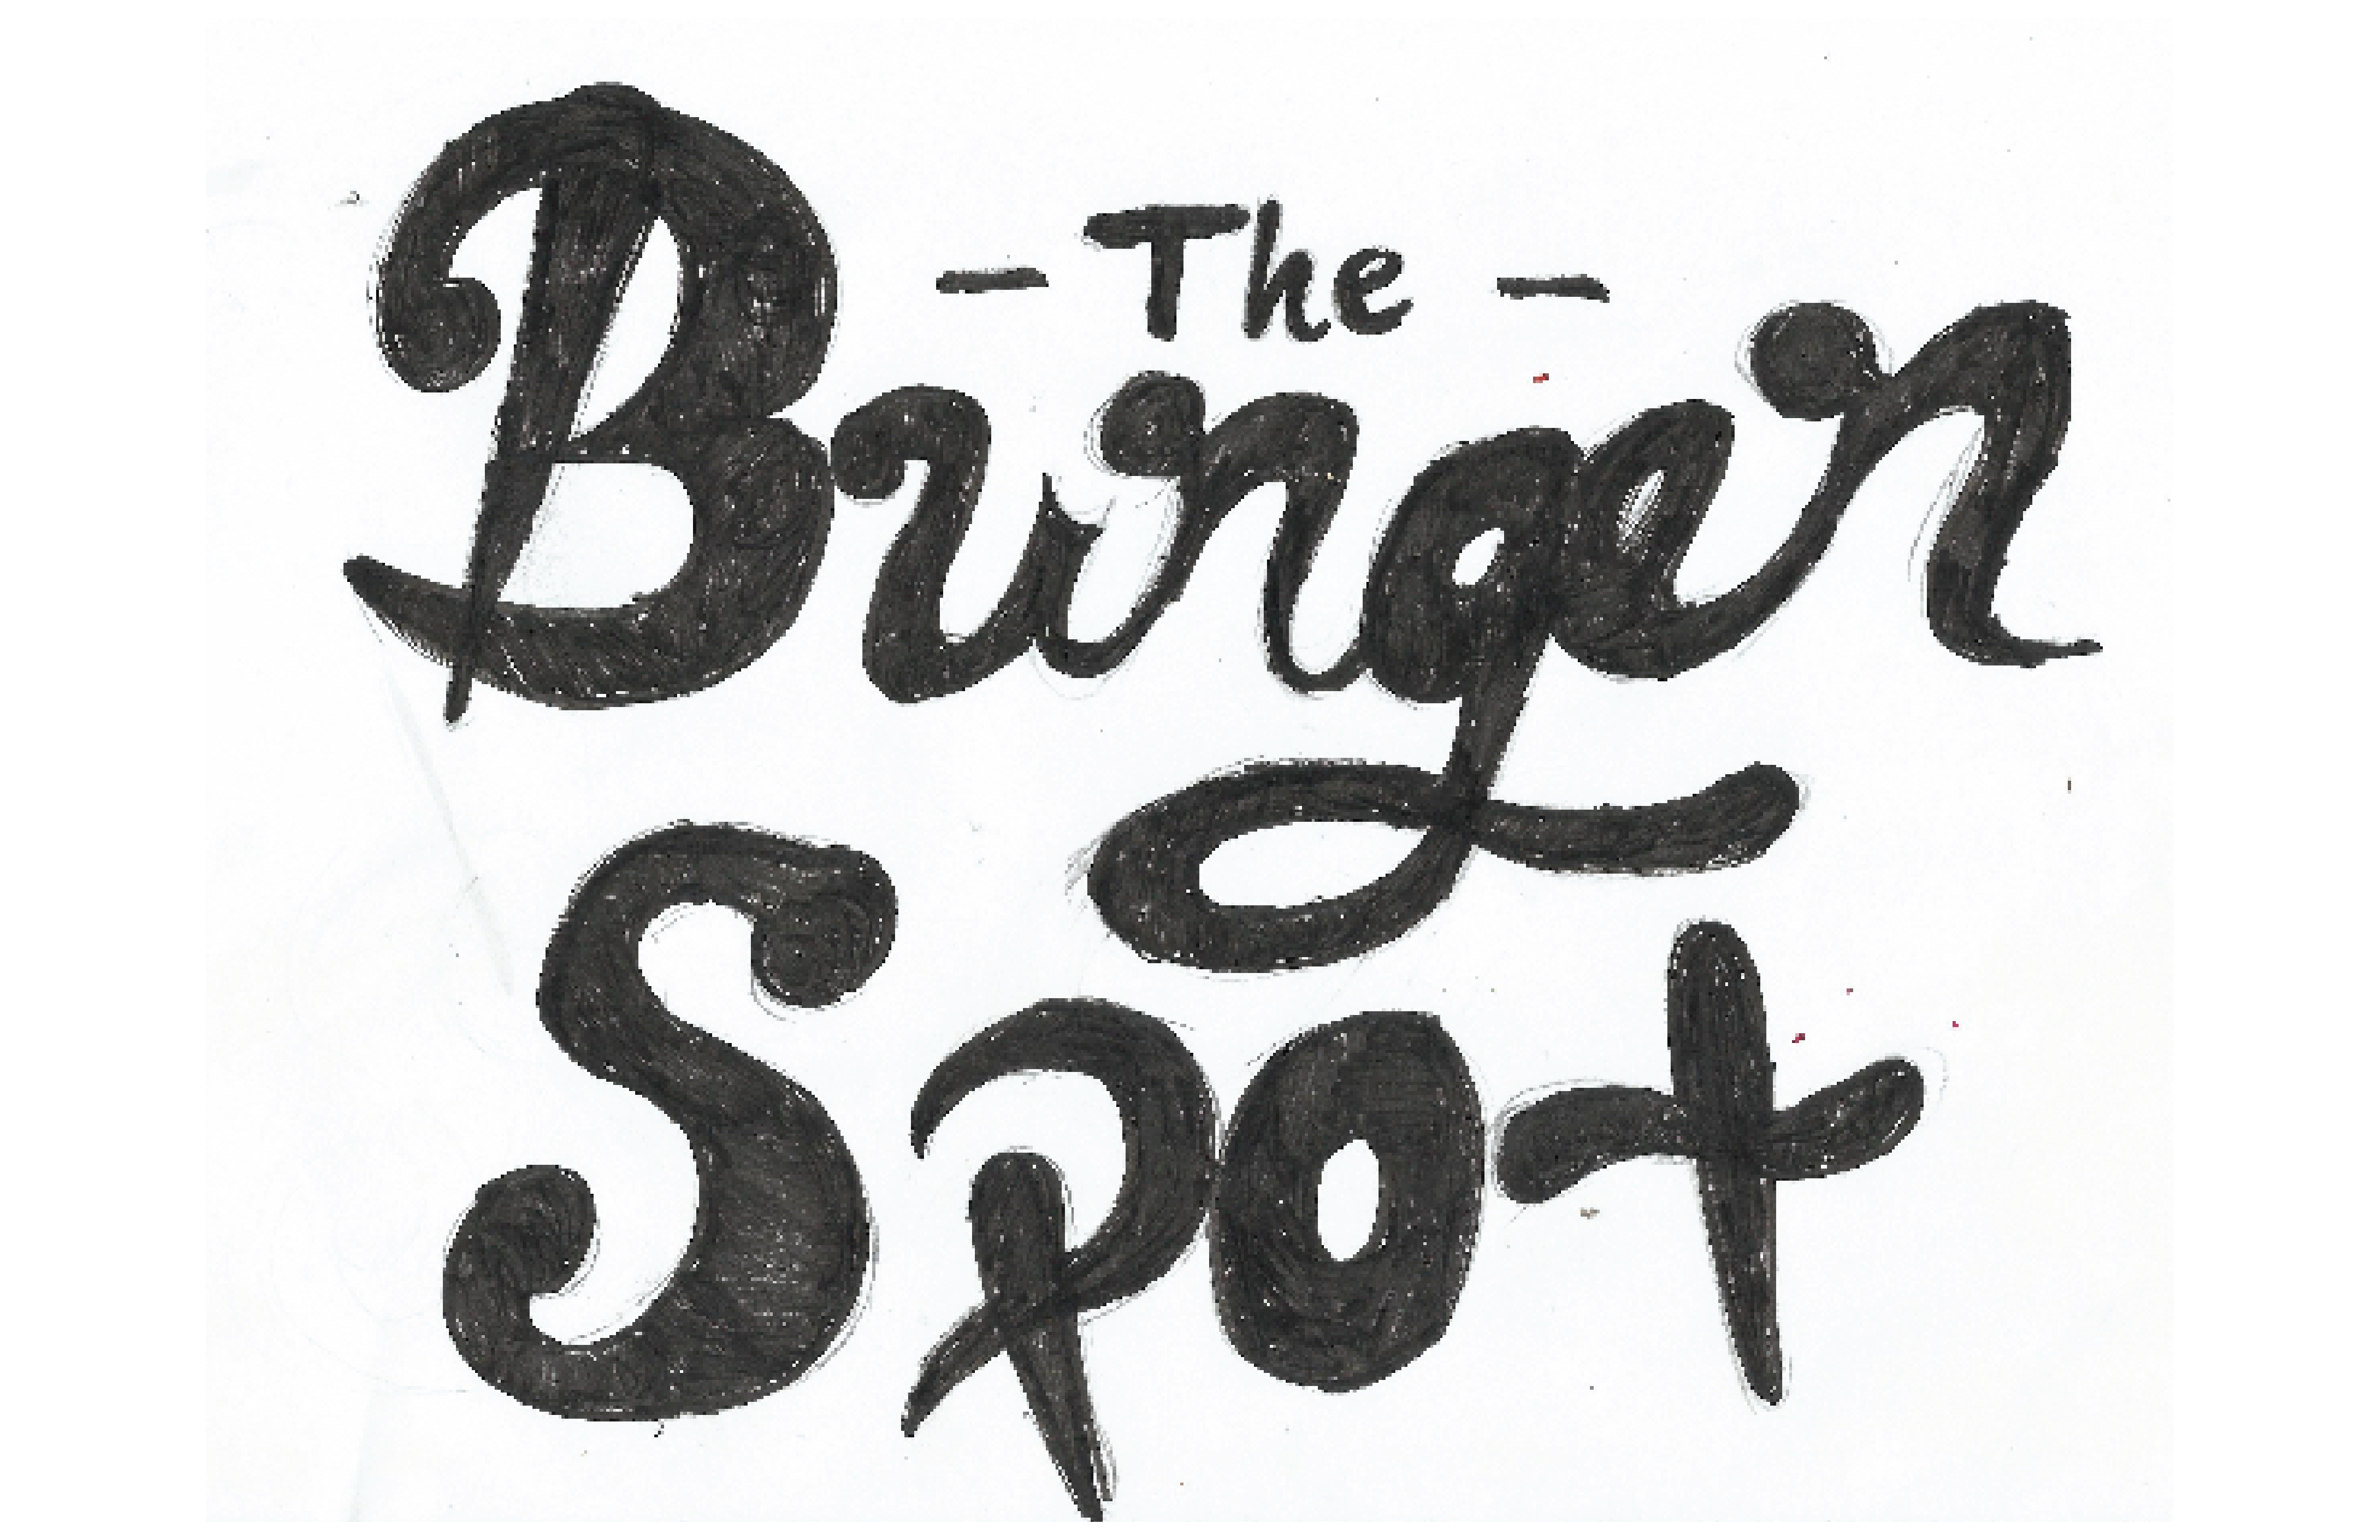 - The -
Burger
Spot